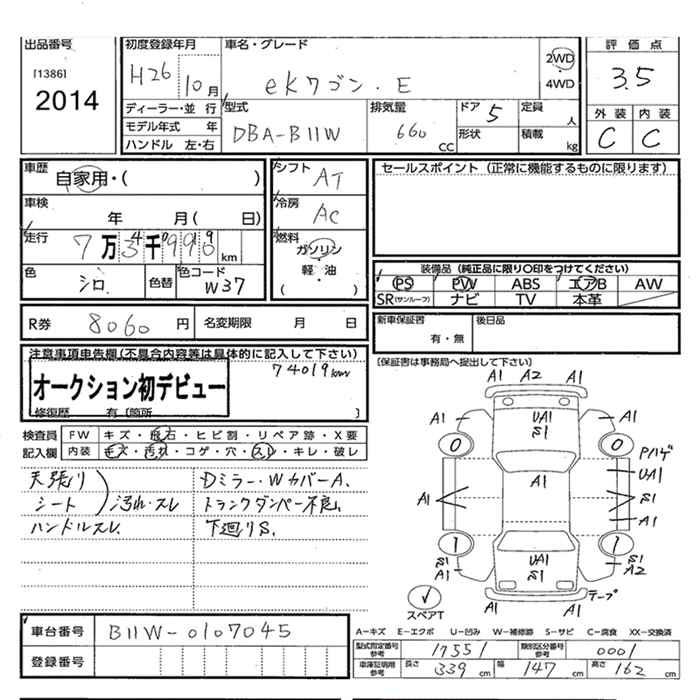 出品番号
[1386]
2014
初度登録年月
H26 10月
車名・グレード
eKワゴン・E
2WD
・
4WD
評価点
3.5
外装 内装
C C
ディーラー・並 行
モデル年式 年
ハンドル 左・右
型式
DBA-B11W
排気量
660 CC
ドア 5
形状
定員 人
積載 kg
車歴
自家用・( )
車検
年 月( 日)
走行
7万3千 km
色
シロ
色替
色コード
W37
シフト
AT
冷房
AC
燃料
ガソリン
軽・油
( )
セールスポイント（正常に機能するものに限ります）
装備品（純正品に限り〇印をつけてください）
PS PW ABS エアB AW
SR(サンルーフ) ナビ TV 本革
R券 8060 円 名変期限 月 日
新車保証書
有・無
後日品
（保証書は事務局へ提出して下さい）
注意事項申告欄（不具合内容等は具体的に記入して下さい）
74019km
オークション初デビュー
修復歴 有〔箇所 〕
検査員
記入欄
FW キズ・飛石・ヒビ割・リペア跡・X要
内装 キズ・汚れ・コゲ・穴・スレ・キレ・破レ
天張り
シート
汚れ・スレ
ハンドルスレ
Dミラー・WカバーA.
トランクダンパー不良.
下廻りS.
A1 A2 A1
A1 UA1 A1
S1
0 0
Pハゲ
UA1
A1
A1 S1
A1
1 1
S1 UA1 S1
A1 S1 A2
テープ
A1
スペアT
車台番号 B11W-0107045
登録番号
A-キズ E-エクボ U-凹み W-補修跡 S-サビ C-腐食 XX-交換済
型式指定番号 参考 17551
類別区分番号 参考 0001
車庫証明用 参考 長さ 339 cm 幅 147 cm 高さ 162 cm